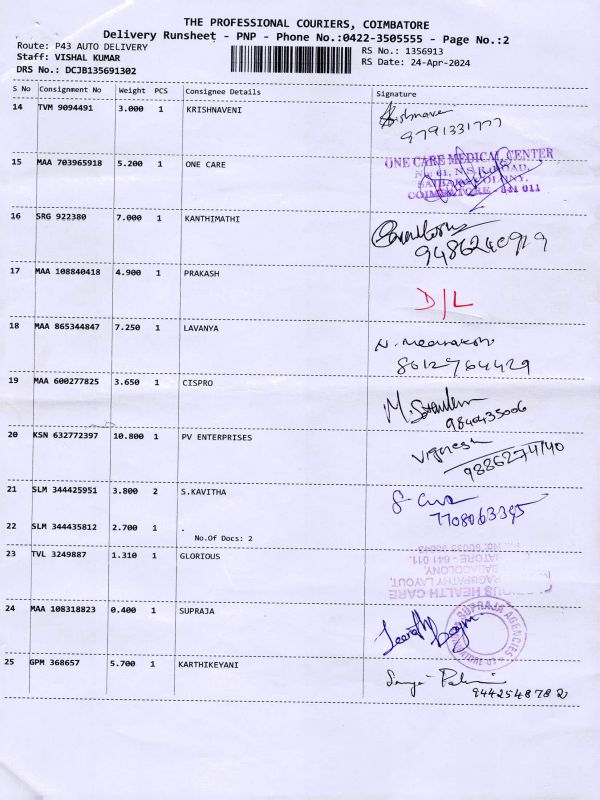 THE PROFESSIONAL COURIERS, COIMBATORE
Delivery Runsheet - PNP - Phone No.:0422-3505555 - Page No.:2
Route: P43 AUTO DELIVERY RS No.: 1356913
Staff: VISHAL KUMAR RS Date: 24-Apr-2024
DRS No.: DCJB135691302
S No Consignment No Weight PCS Consignee Details Signature
14 TVM 9094491 3.000 1 KRISHNAVENI
9791331777
15 MAA 703965918 5.200 1 ONE CARE
ONE CARE MEDICAL CENTER
No: 61, N.S.R. ROAD,
SAIBABA COLONY,
COIMBATORE - 641 011
16 SRG 922380 7.000 1 KANTHIMATHI
9486240919
17 MAA 108840418 4.900 1 PRAKASH
D/L
18 MAA 865344847 7.250 1 LAVANYA
N. Meenakshi
8012764429
19 MAA 600277825 3.650 1 CISPRO
9840435006
20 KSN 632772397 10.800 1 PV ENTERPRISES
Vignesh
9886274140
21 SLM 344425951 3.800 2 S.KAVITHA
7708063395
22 SLM 344435812 2.700 1 .
No.Of Docs: 2
23 TVL 3249887 1.310 1 GLORIOUS
HEALTH CARE
RAGUPATHY LAYOUT,
BABACOLONY,
ATORE - 641 011.
24 MAA 108318823 0.400 1 SUPRAJA
SUPRAJA AGENCIES
25 GPM 368657 5.700 1 KARTHIKEYANI
9442548782